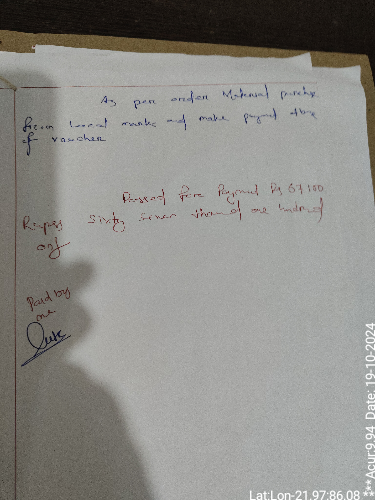 As per order Material purchase
from local market and make payment three
of voucher
Passed for Payment Rs 67100
Rupees Sixty seven thousand one hundred
only
Paid by
me
Lat:Lon-21.97:86.08
***Acur:9.94 Date: 19-10-2024